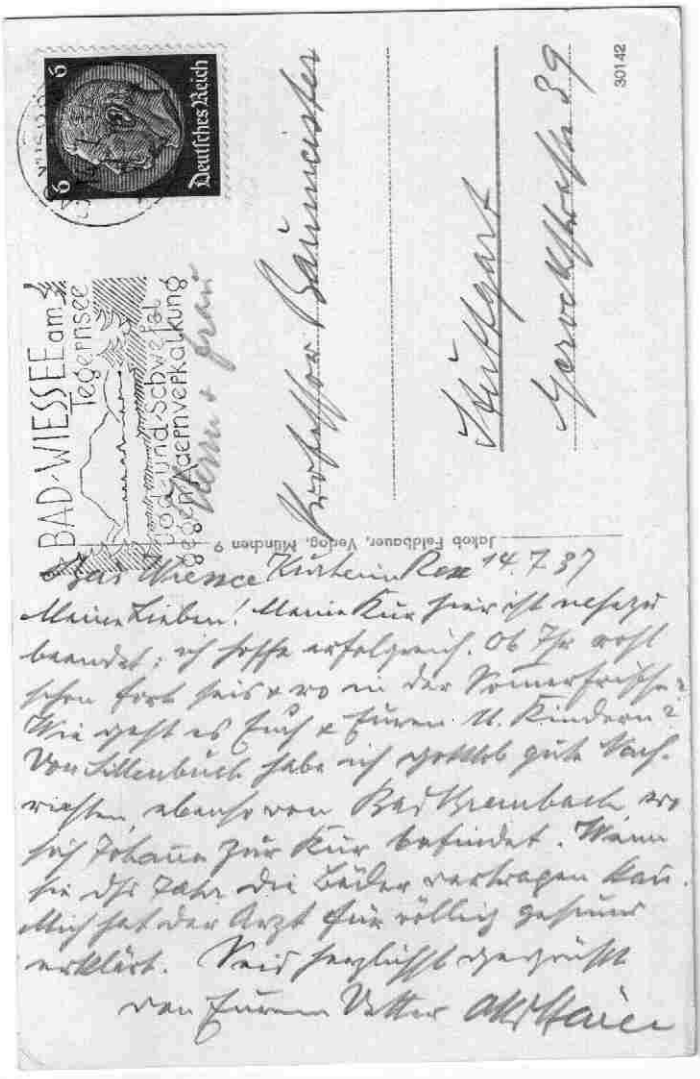 6
6
Deutsches Reich
BAD-WIESSEE am
Tegernsee
Jod-und-Schwefel
gegen Adernverkalkung
Herrn & Frau
Professor Bäumeister
Stuttgart
Gerokstrasse 39
30142
Jakob Feldbauer, Verlag, München 9
Bad Wiessee Kurheim Rex 14.7.37
Meine Lieben! Meine Kur hier ist nahezu
beendet; ich hoffe erfolgreich. Ob Ihr wohl
schon fort seid & wo in der Sommerfrische?
Wie geht es Euch & Euren Kindern?
Von Sillenbuch habe ich gottlob gute Nach-
richten, ebenso von Bad Brambach wo
sich Johanna zur Kur befindet. Wenn
sie dies Jahr die Bäder vertragen kann.
Mich hat der Arzt für völlig gesund
erklärt. Seid herzlichst gegrüsst
von Eurem Vetter